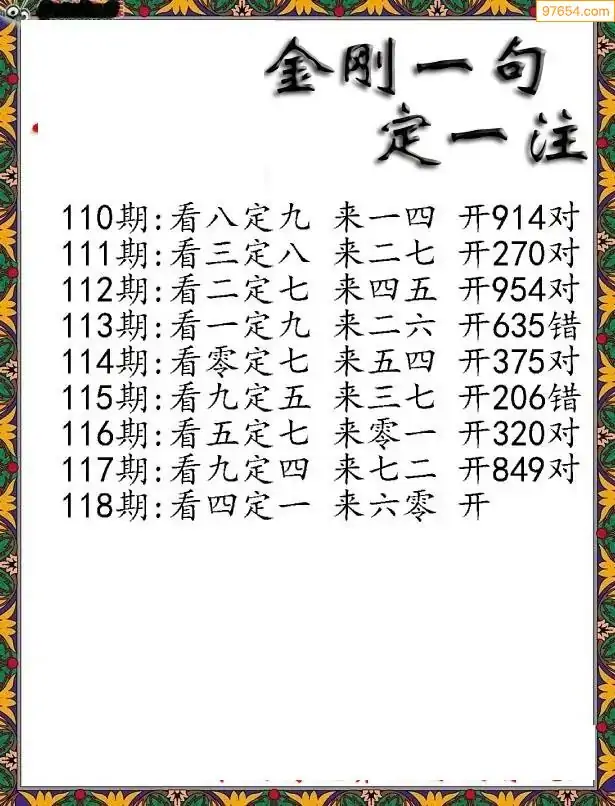 97654.com
金刚一句
定一注
110期:看八定九 来一四 开914对
111期:看三定八 来二七 开270对
112期:看二定七 来四五 开954对
113期:看一定九 来二六 开635错
114期:看零定七 来五四 开375对
115期:看九定五 来三七 开206错
116期:看五定七 来零一 开320对
117期:看九定四 来七二 开849对
118期:看四定一 来六零 开